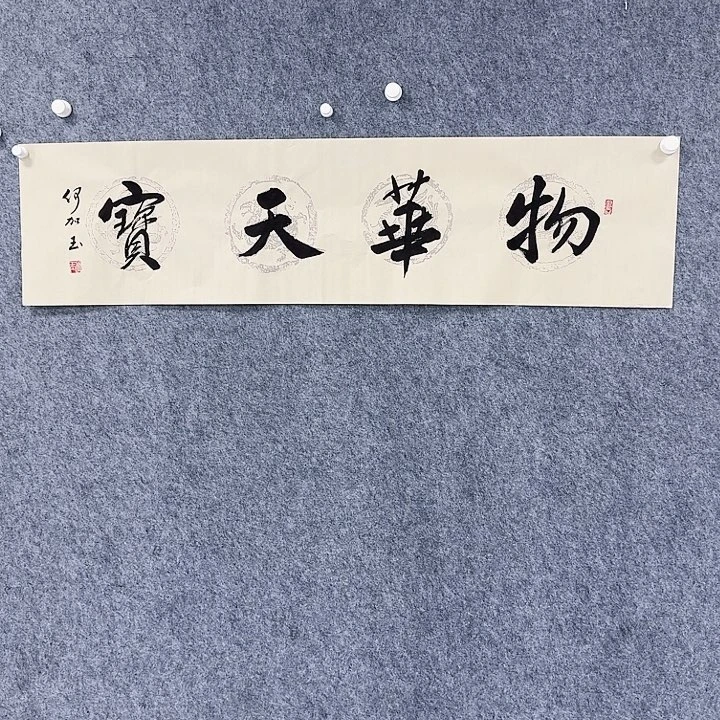 物華天寶
何加玉